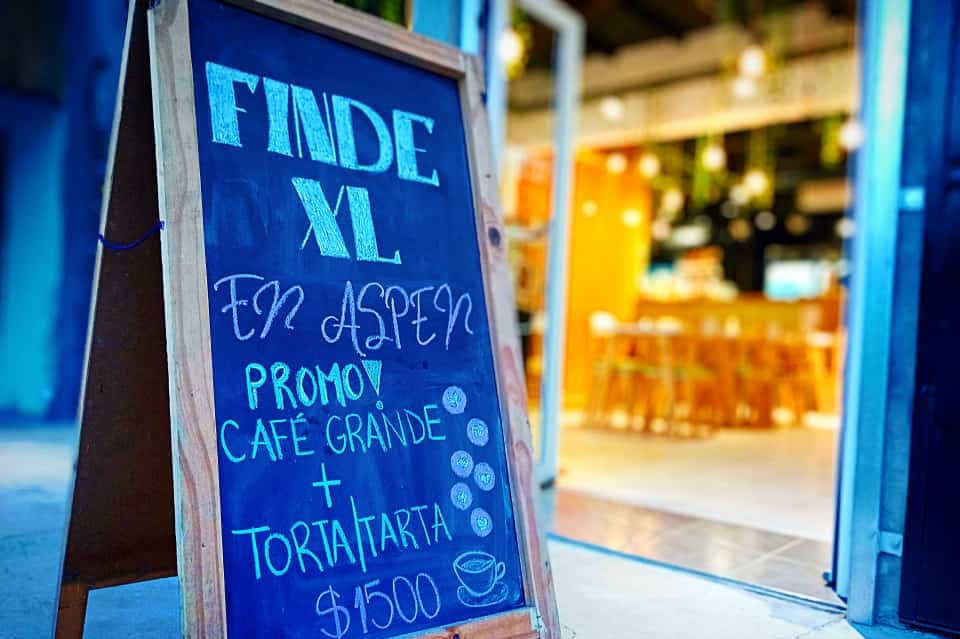 FINDE
XL
EN ASPEN
PROMO!
CAFÉ GRANDE
+
TORTA/TARTA
$1500